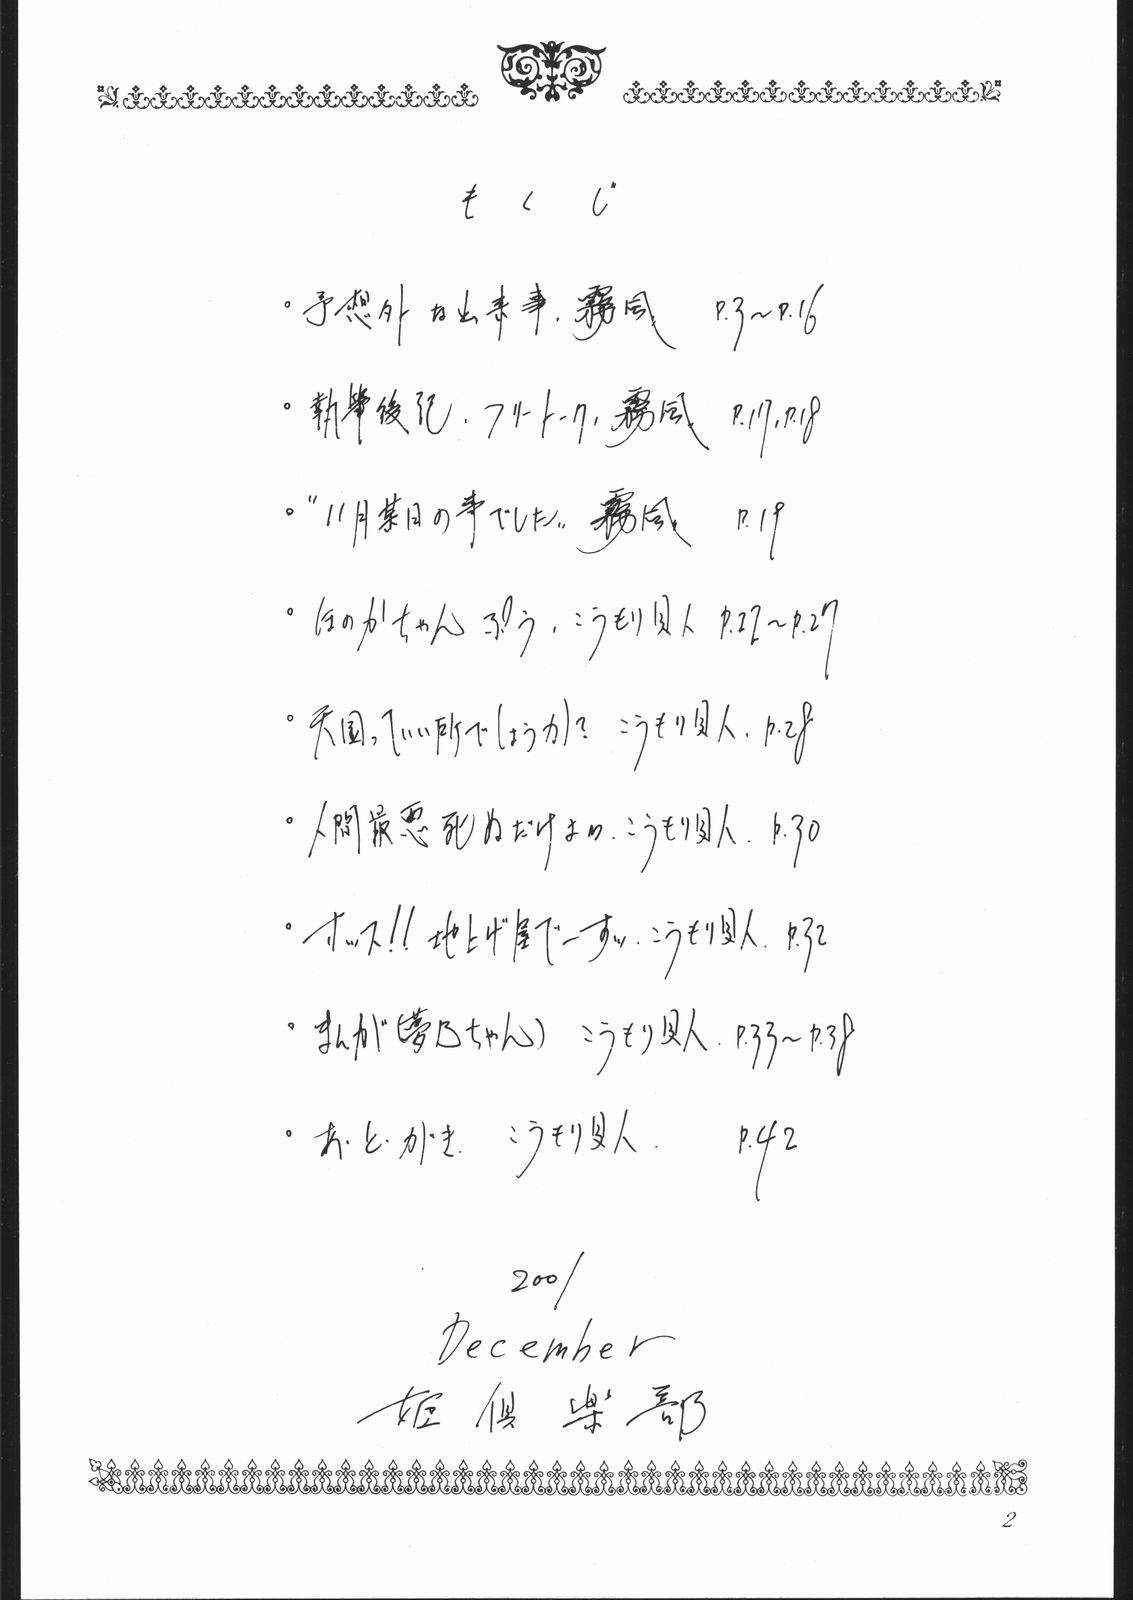 もくじ
・予想外な出来事. 霧風 P.3～P.16
・執筆後記. フリートーク. 霧風 P.17, P.18
・"11月某日の事でした" 霧風 P.19
・ほのかちゃんぷう. こうもり貝人 P.22～P.27
・天国っていい所でしょうか? こうもり貝人. P.28
・人間最悪死ぬだけよね. こうもり貝人. P.30
・オッス!! 地上げ屋でーすッ. こうもり貝人. P.32
・まんが(夢乃ちゃん) こうもり貝人. P.33～P.38
・あ・と・がき. こうもり貝人. P.42
2001
December
姫倶楽部
2